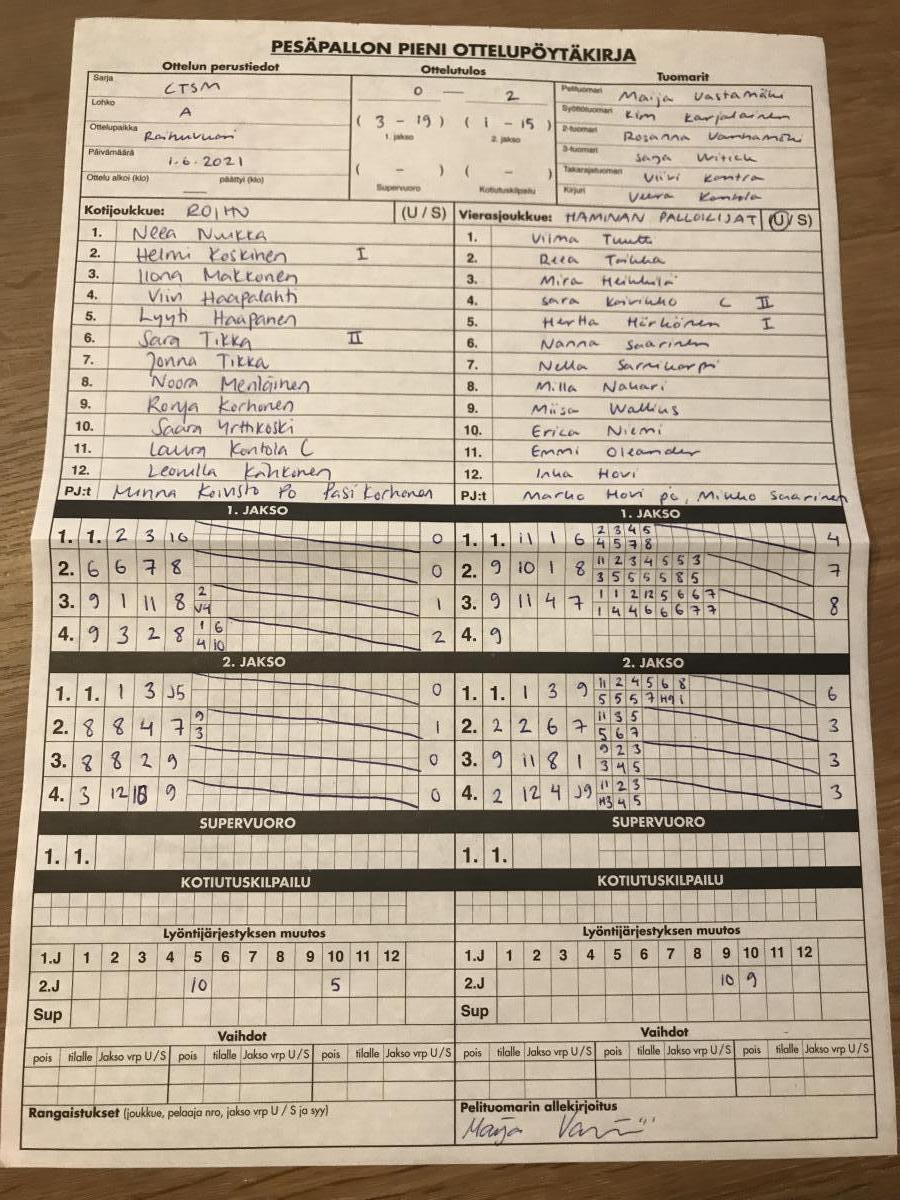 PESÄPALLON PIENI OTTELUPÖYTÄKIRJA
Ottelun perustiedot Ottelutulos Tuomarit
Sarja CTSM
Lohko A
Ottelupaikka
Päivämäärä 1.6.2021
Ottelu alkoi (klo) päättyi (klo)
0 — 2
( 3 - 19 ) ( 1 - 15 )
1. jakso 2. jakso
( - ) ( - )
Supervuoro Kotiutuskilpailu
Pelituomari Maija Vastamäki
Syöttötuomari Kim Karjalainen
2-tuomari Rosanna Vanhamäki
3-tuomari Saga
Takarajatuomari Viivi Kontra
Kirjuri Veera Kontola
Kotijoukkue: (U / S)
1. Neea Nuikka
2. Helmi Koskinen I
3. Ilona Makkonen
4. Viivi Haapalahti
5. Lyyti Haapanen
6. Sara Tikka II
7. Jonna Tikka
8. Noora
9. Ronja Korhonen
10. Saara
11. Laura Kontola C
12. Leonilla Kähkönen
PJ:t Minna Koivisto PO Pasi Korhonen
Vierasjoukkue: HAMINAN PALLOILIJAT (U / S)
1. Vilma
2. Reea Toikka
3. Mira Heikkilä
4. Sara Koivikko C II
5. Hertta Härkönen I
6. Nanna Saarinen
7. Nella Sarnikorpi
8. Milla Nakari
9. Miisa Wallius
10. Erica Niemi
11. Emmi Oleander
12. Inka Hovi
PJ:t Marko Hovi po, Mikko Saarinen
1. JAKSO
1. 1. 2 3 10 0
2. 6 6 7 8 0
3. 9 1 11 8 2 1
V4
4. 9 3 2 8 1 6 2
4 10
2. JAKSO
1. 1. 1 3 J5 0
2. 8 8 4 7 9 1
3
3. 8 8 2 9 0
4. 3 12 9 0
1. JAKSO
1. 1. 11 1 6 2 3 4 5 4
4 5 7 8
2. 9 10 1 8 11 2 3 4 5 5 3 7
3 5 5 5 5 8 5
3. 9 11 4 7 1 1 2 12 5 6 6 7 8
1 4 4 6 6 6 7 7
4. 9
2. JAKSO
1. 1. 1 3 9 11 2 4 5 6 8 6
5 5 5 7 H9 1
2. 2 2 6 7 11 3 5 3
5 6 7
3. 9 11 8 1 9 2 3 3
3 4 5
4. 2 12 4 J9 11 2 3 3
H3 4 5
SUPERVUORO SUPERVUORO
1. 1. 1. 1.
KOTIUTUSKILPAILU KOTIUTUSKILPAILU
Lyöntijärjestyksen muutos Lyöntijärjestyksen muutos
1.J 1 2 3 4 5 6 7 8 9 10 11 12 1.J 1 2 3 4 5 6 7 8 9 10 11 12
2.J 10 5 2.J 10 9
Sup Sup
Vaihdot Vaihdot
pois tilalle Jakso vrp U/S pois tilalle Jakso vrp U/S pois tilalle Jakso vrp U/S pois tilalle Jakso vrp U/S pois tilalle Jakso vrp U/S pois tilalle Jakso vrp U/S
Rangaistukset (joukkue, pelaaja nro, jakso vrp U / S ja syy) Pelituomarin allekirjoitus
Maija